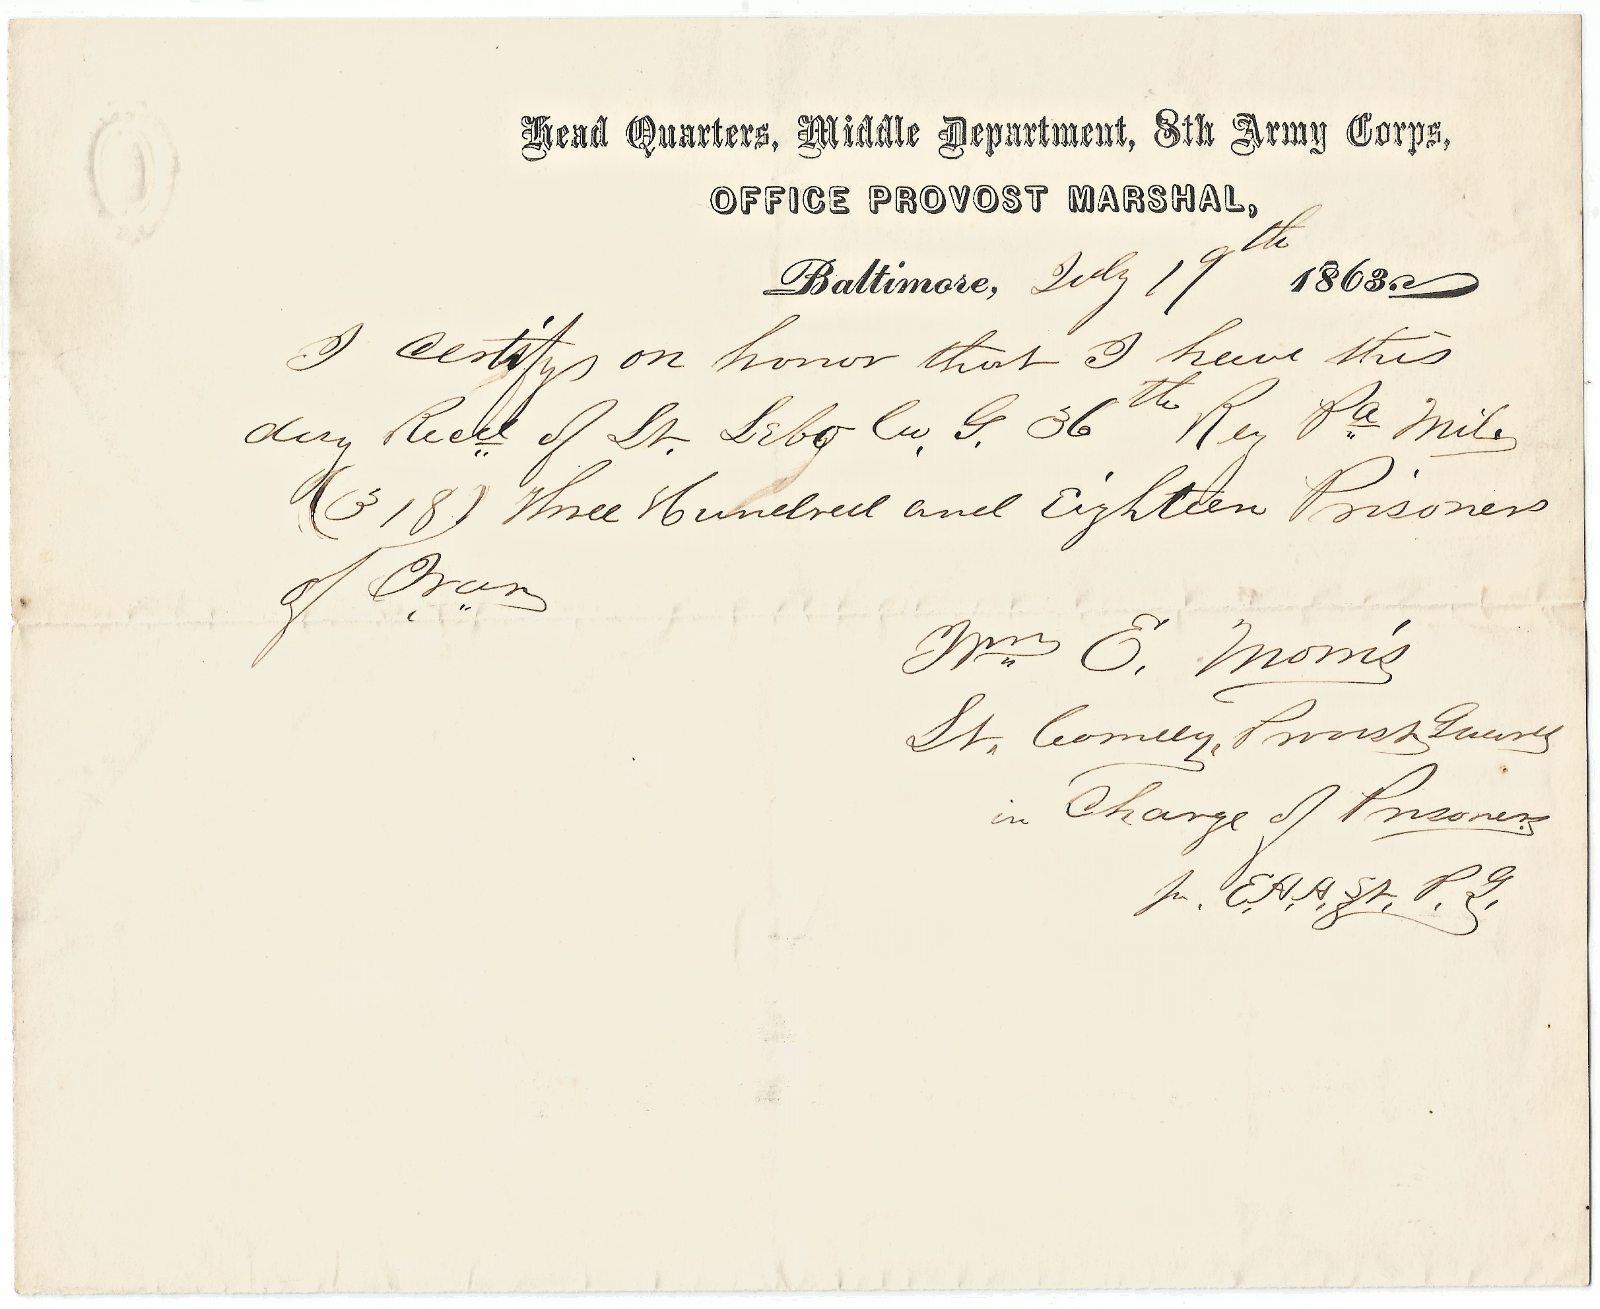 Head Quarters, Middle Department, 8th Army Corps,
OFFICE PROVOST MARSHAL,
Baltimore, July 19th 1863.
I certify on honor that I have this
day Recd of Lt. Lebo Co. G. 36th Reg Pa Mil.
(318) Three Hundred and Eighteen Prisoners
of War
Wm E. Morris
Lt. Comdg. Provost Guard
in Charge of Prisoners
pr. E.A.A. Lt. P. G.